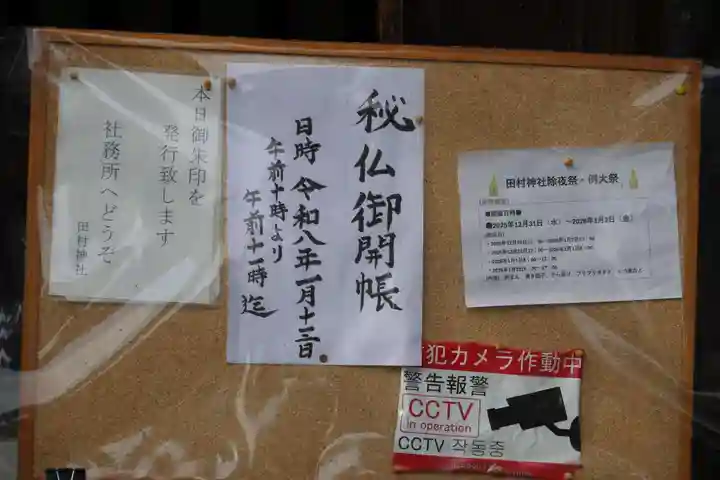 本日御朱印を
発行致します
社務所へどうぞ
田村神社
秘仏御開帳
日時 令和八年一月十三日
午前十時より
午前十一時迄
田村神社除夜祭・例大祭
●2025年12月31日(水)~2026年1月2日(金)
防犯カメラ作動中
警告報警
CCTV
in operation
CCTV 작동중